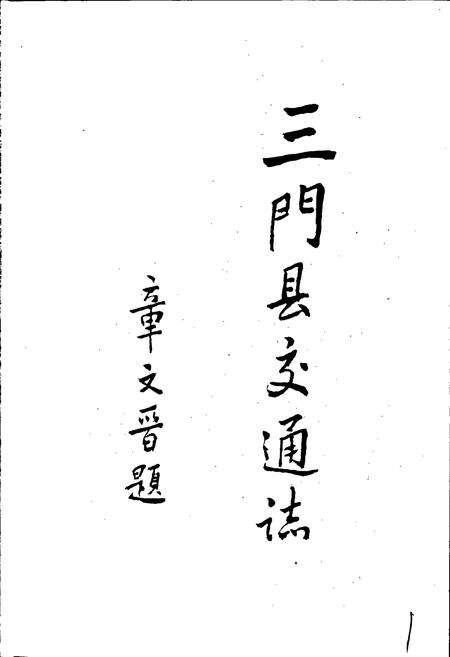 三門县交通誌
章文晋題